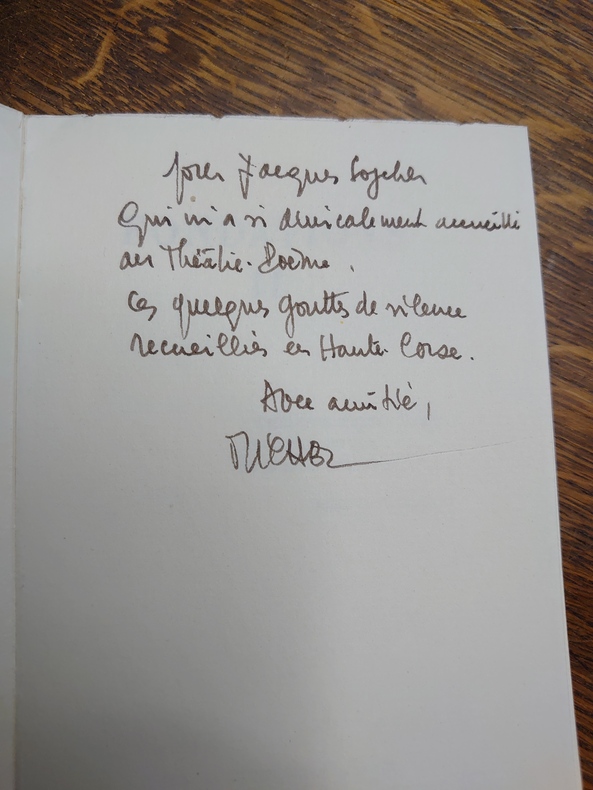 pour Jacques Sojcher
Qui m'a si amicalement accueilli
au Théâtre-Poème.
Ces quelques gouttes de silence
recueillies en Haute-Corse.
Avec amitié,
MICHEL